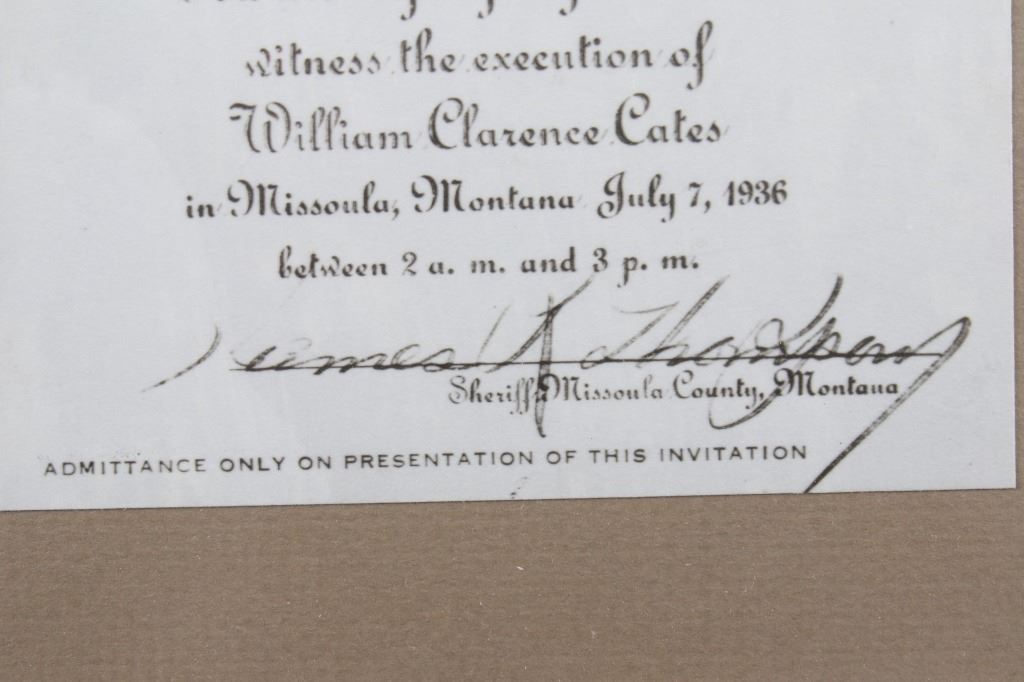 witness the execution of
William Clarence Cates
in Missoula, Montana July 7, 1936
between 2 a. m. and 3 p. m.
James R Thompson
Sheriff Missoula County, Montana
ADMITTANCE ONLY ON PRESENTATION OF THIS INVITATION